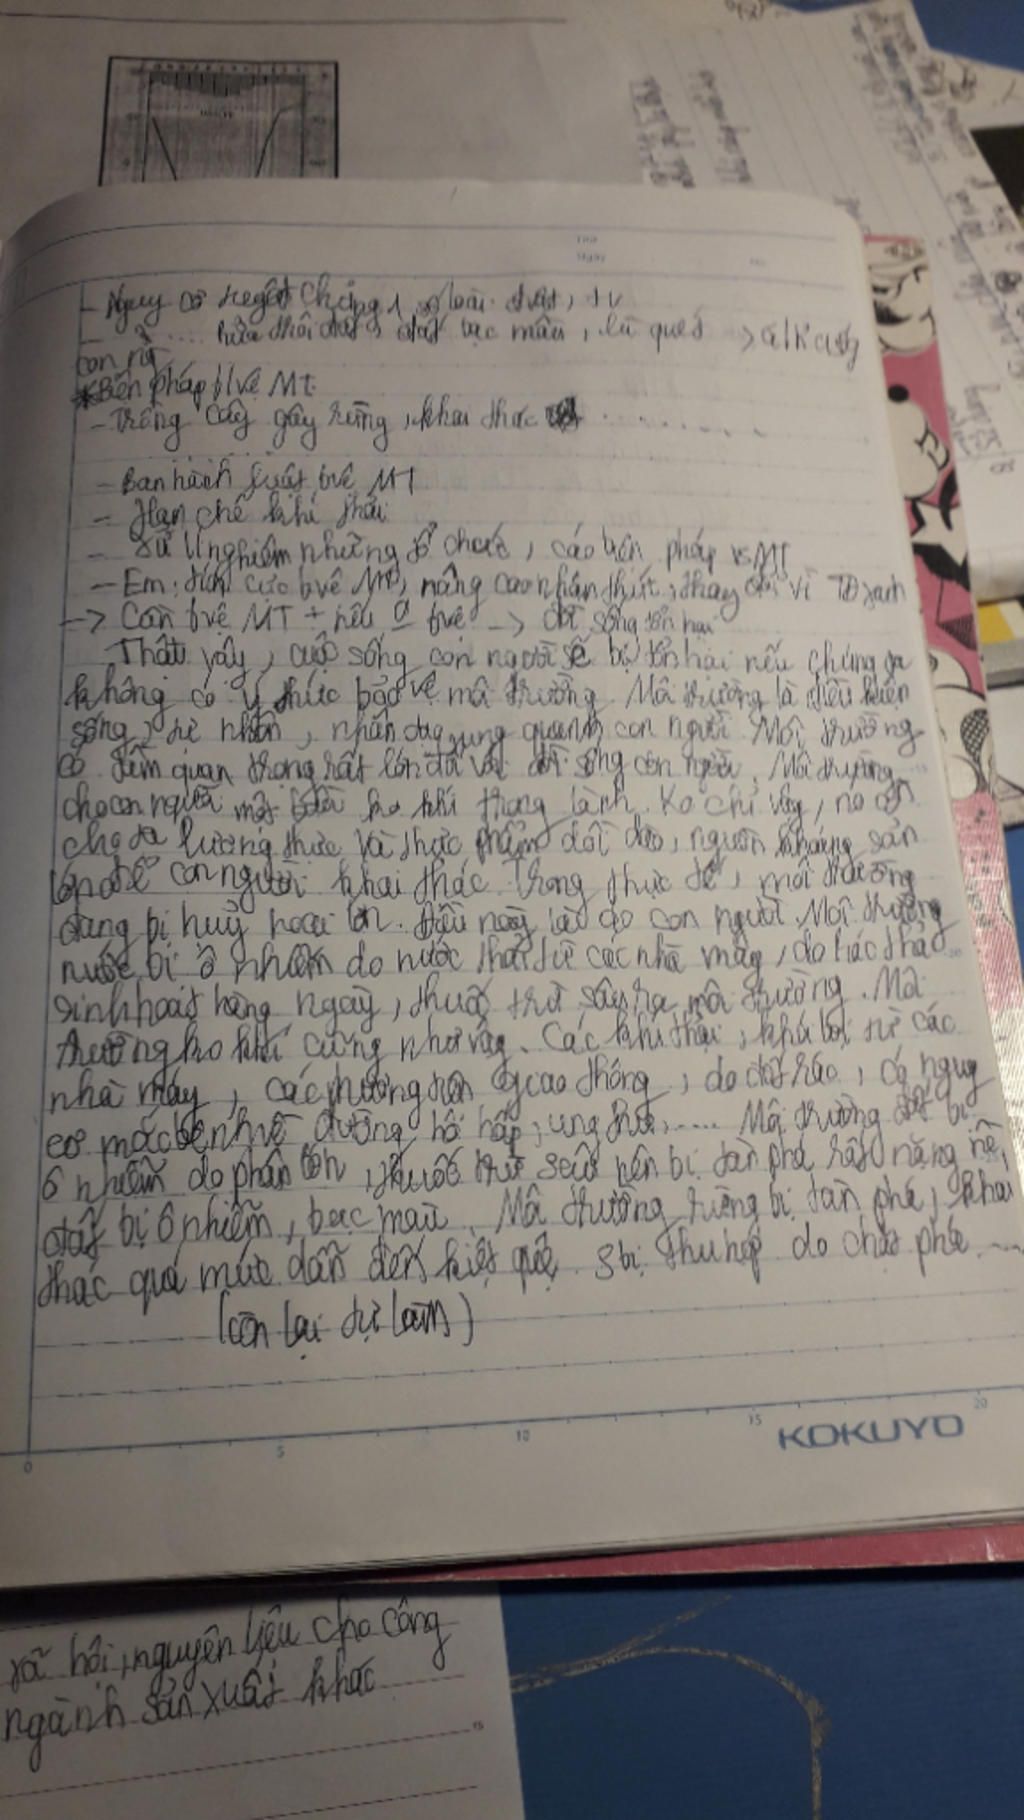 - Nguy cơ tuyệt chủng 1 số loài đvật, tv
xói thoái đất, đất bạc màu, lũ quét
con ng
* Biện pháp b/vệ MT
- Trồng cây gây rừng, khai thác .......
- Ban hành luật bvệ MT
- Hạn chế khí thải
- Xử lí nghiêm những tổ chức, pháp MT
- Em: tích cực bvệ MT, nâng cao nhận thức, thay đổi vì TĐ xanh
-> Cần bvệ MT + nếu 0 bvệ -> đời sống tổn hại
Thật vậy, cuộc sống con người sẽ bị tổn hại nếu chúng ta
không có ý thức bảo vệ môi trường. Môi trường là điều kiện
sống, tự nhiên, nhân tạo xung quanh con người. Môi trường
có tầm quan trọng rất lớn đối với đời sống con người. Môi trường
cho con người một bầu ko khí trong lành. Ko chỉ vậy, nó còn
cho ta lương thực và thực phẩm dồi dào, nguồn khoáng sản
lớn để con người khai thác. Trong thực tế, môi trường
đang bị huỷ hoại lớn. Điều này là do con người. Môi trường
nước bị ô nhiễm do nước thải từ các nhà máy, do rác thải
sinh hoạt hàng ngày, thuốc trừ sâu ra môi trường. Môi
trường ko khí cũng như vậy. Các khí thải, khói bụi từ các
nhà máy, các phương tiện giao thông, do đốt rác, có nguy
cơ mắc bệnh về đường hô hấp, ung thư, .... Môi trường đất bị
ô nhiễm do phân bón, thuốc trừ sâu nên bị tàn phá rất nặng nề,
đất bị ô nhiễm, bạc màu. Môi trường rừng bị tàn phá, khai
thác quá mức dẫn đến kiệt quệ. S bị thu hẹp do chặt phá ....
(còn lại tự làm)
0 5 10 15 20
KOKUYO
xã hội, nguyên liệu cho công
ngành sản xuất khác
15